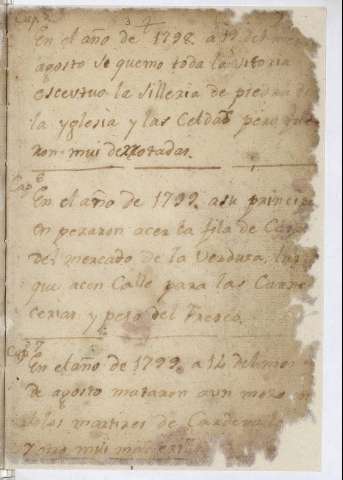 Cap. 5
En el año de 1798. a 12 del mes
agosto se quemo toda la vitoria
esceutuo la silleria de piedra
la yglesia y las Celdas pero
ron mui derrotadas.
Cap 6
En el año de 1799. a su principio
en pezaron acer la fila de
del mercado de la Verdura,
que acen Calle para las Carne
cerias y peso del Fresco.
Cap. 7
En el año de 1799. a 14 del mes
de agosto mataron a un mozo
los martires de Cardena
y uvo mui